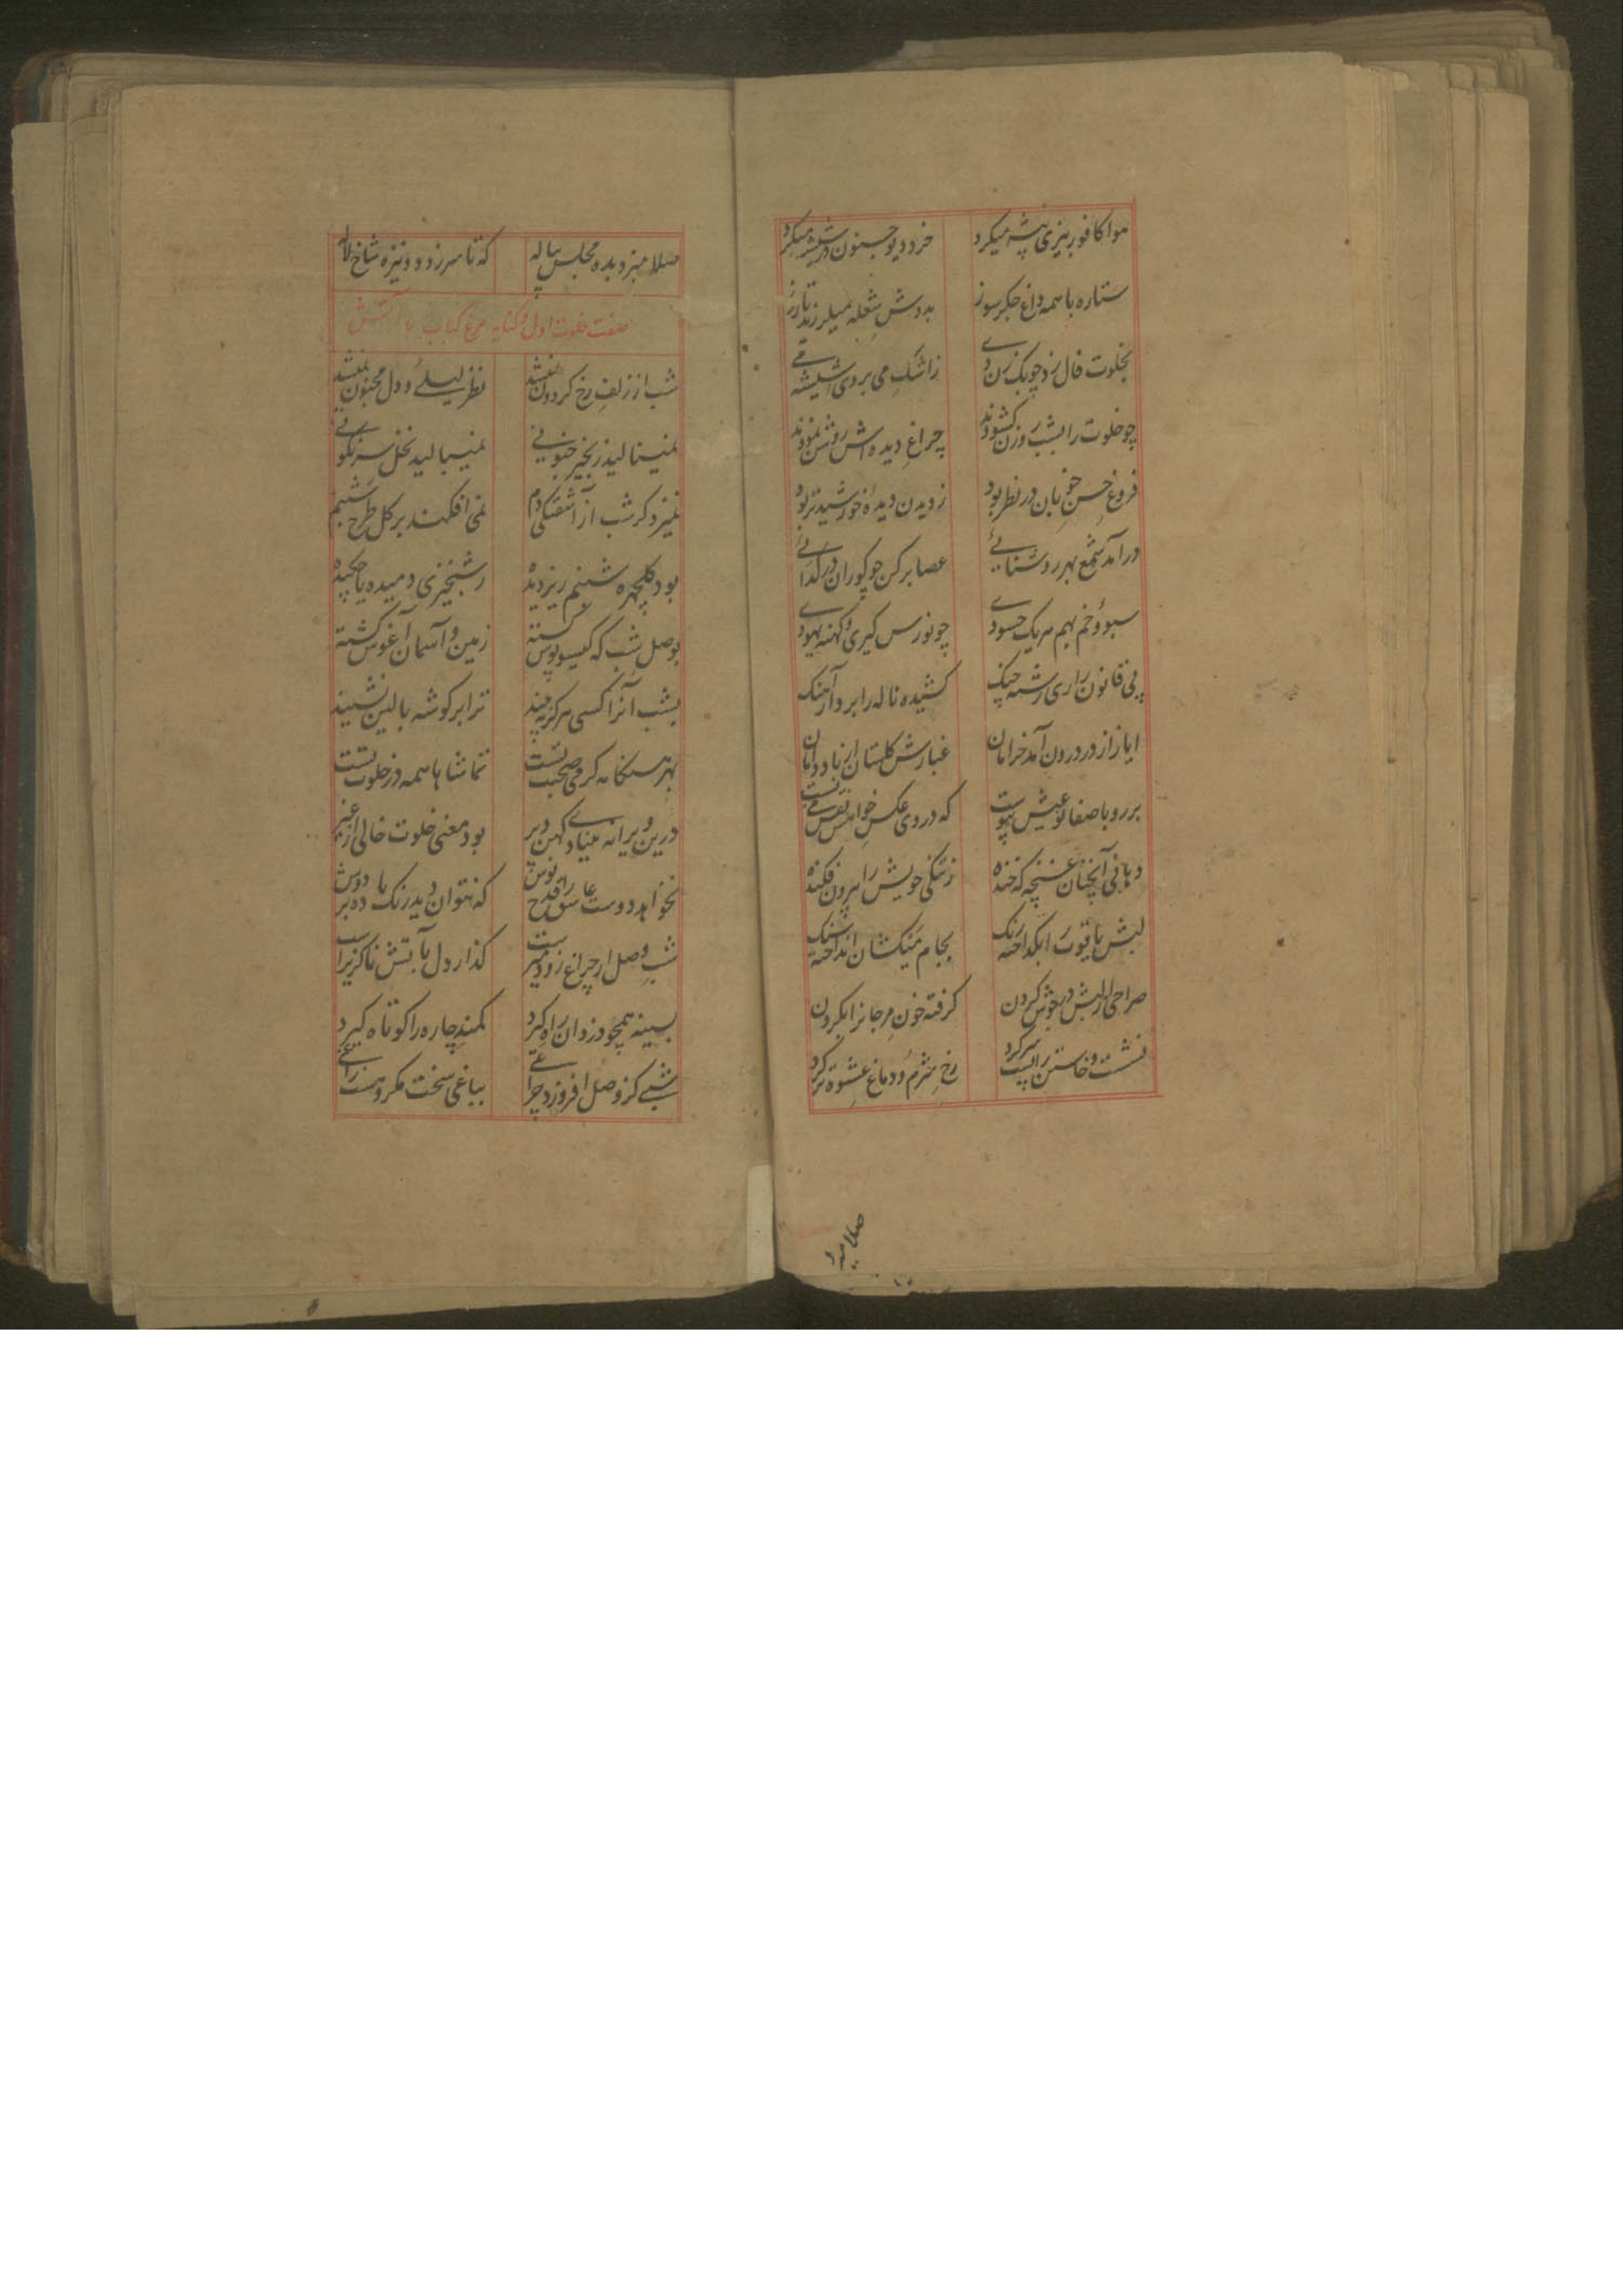 هوا کافور بیزی پیشه میکرد خرد دیو جنون در شیشه میکرد
ستاره با همه داغ جکر سوز بدوش شعله میلرزید تا روز
بخلوت فال زد چوبک زن دی ز اشک می بروی شیشه می
چو خلوت را بشب روزن کشودند چراغ دیده اش روشن نمودند
فروغ حسن خوبان در نظر بود ز دیدن دیدهٔ خورشید تر بود
درآمد شمع بهر روشنائی عصا برکن چو کوران در کدائی
سبو و خم بهم هر یک حسودی چو نورس کبری و کهنه یهودی
پی قانون رشته چنک کشیده ناله را بر و آهنک
ایاز از در درون آمد خرامان غبارش کلستان زیاد دامان
بر رو با صفا نو عیش پیوست که در وی عکس خواهش نقش می بست
دهانی آنچنان غنچه که خنده ز تنکی خویش را بیرون فکنده
لبش یاقوت را بکداخته رنک بجام میکشان انداخته سنک
صراحی از لبش در جوش کردن کرفته خون مرجانرا بکردن
نشست و خاستن را پیت سر کرد رخ شرم و دماغ عشوه تر کرد
صلا میزد
صلا میزد بده مجلس پیاله که تا سر زد و نیزه شاخ لاله
صفت خلوت اول و کنایه مرغ کباب با آتش
شب از زلف رخ کردون نمیشد نظر لیلی و دل مجنون نمیشد
نمینالید زنجیر جنونی نمیبالید نخل سرنکونی
نمیزد کر شب از آشفتکی دم نمی افکند بر کل طرح شبنم
بود کلچهره شبنم ریز دیده ز شبخیزی دمیده یا چکیده
بوصل شب که کیسو پوش کشته زمین و آسمان آغوش کشته
بشب آنرا کسی هرکز نچیند ترا بر کوشه بالین نشیند
بهر هنکامه کرمی صحبت تست تماشاها همه در خلوت تست
درین ویرانه بنیاد کهن دیر بود معنی خلوت خالی از غیر
نخواهد دوست عاشق را قدح نوش که نتوان دید رنک باده بر دوش
شب وصل از چراغ زود میر است کداز دل بآتش ناکزیر است
بسینه همچو دزدان راه کیرد کمند چاره را کوتاه کیرد
شبی کز وصل افروزد چراغی بباغی سخت مکروهست زاغی